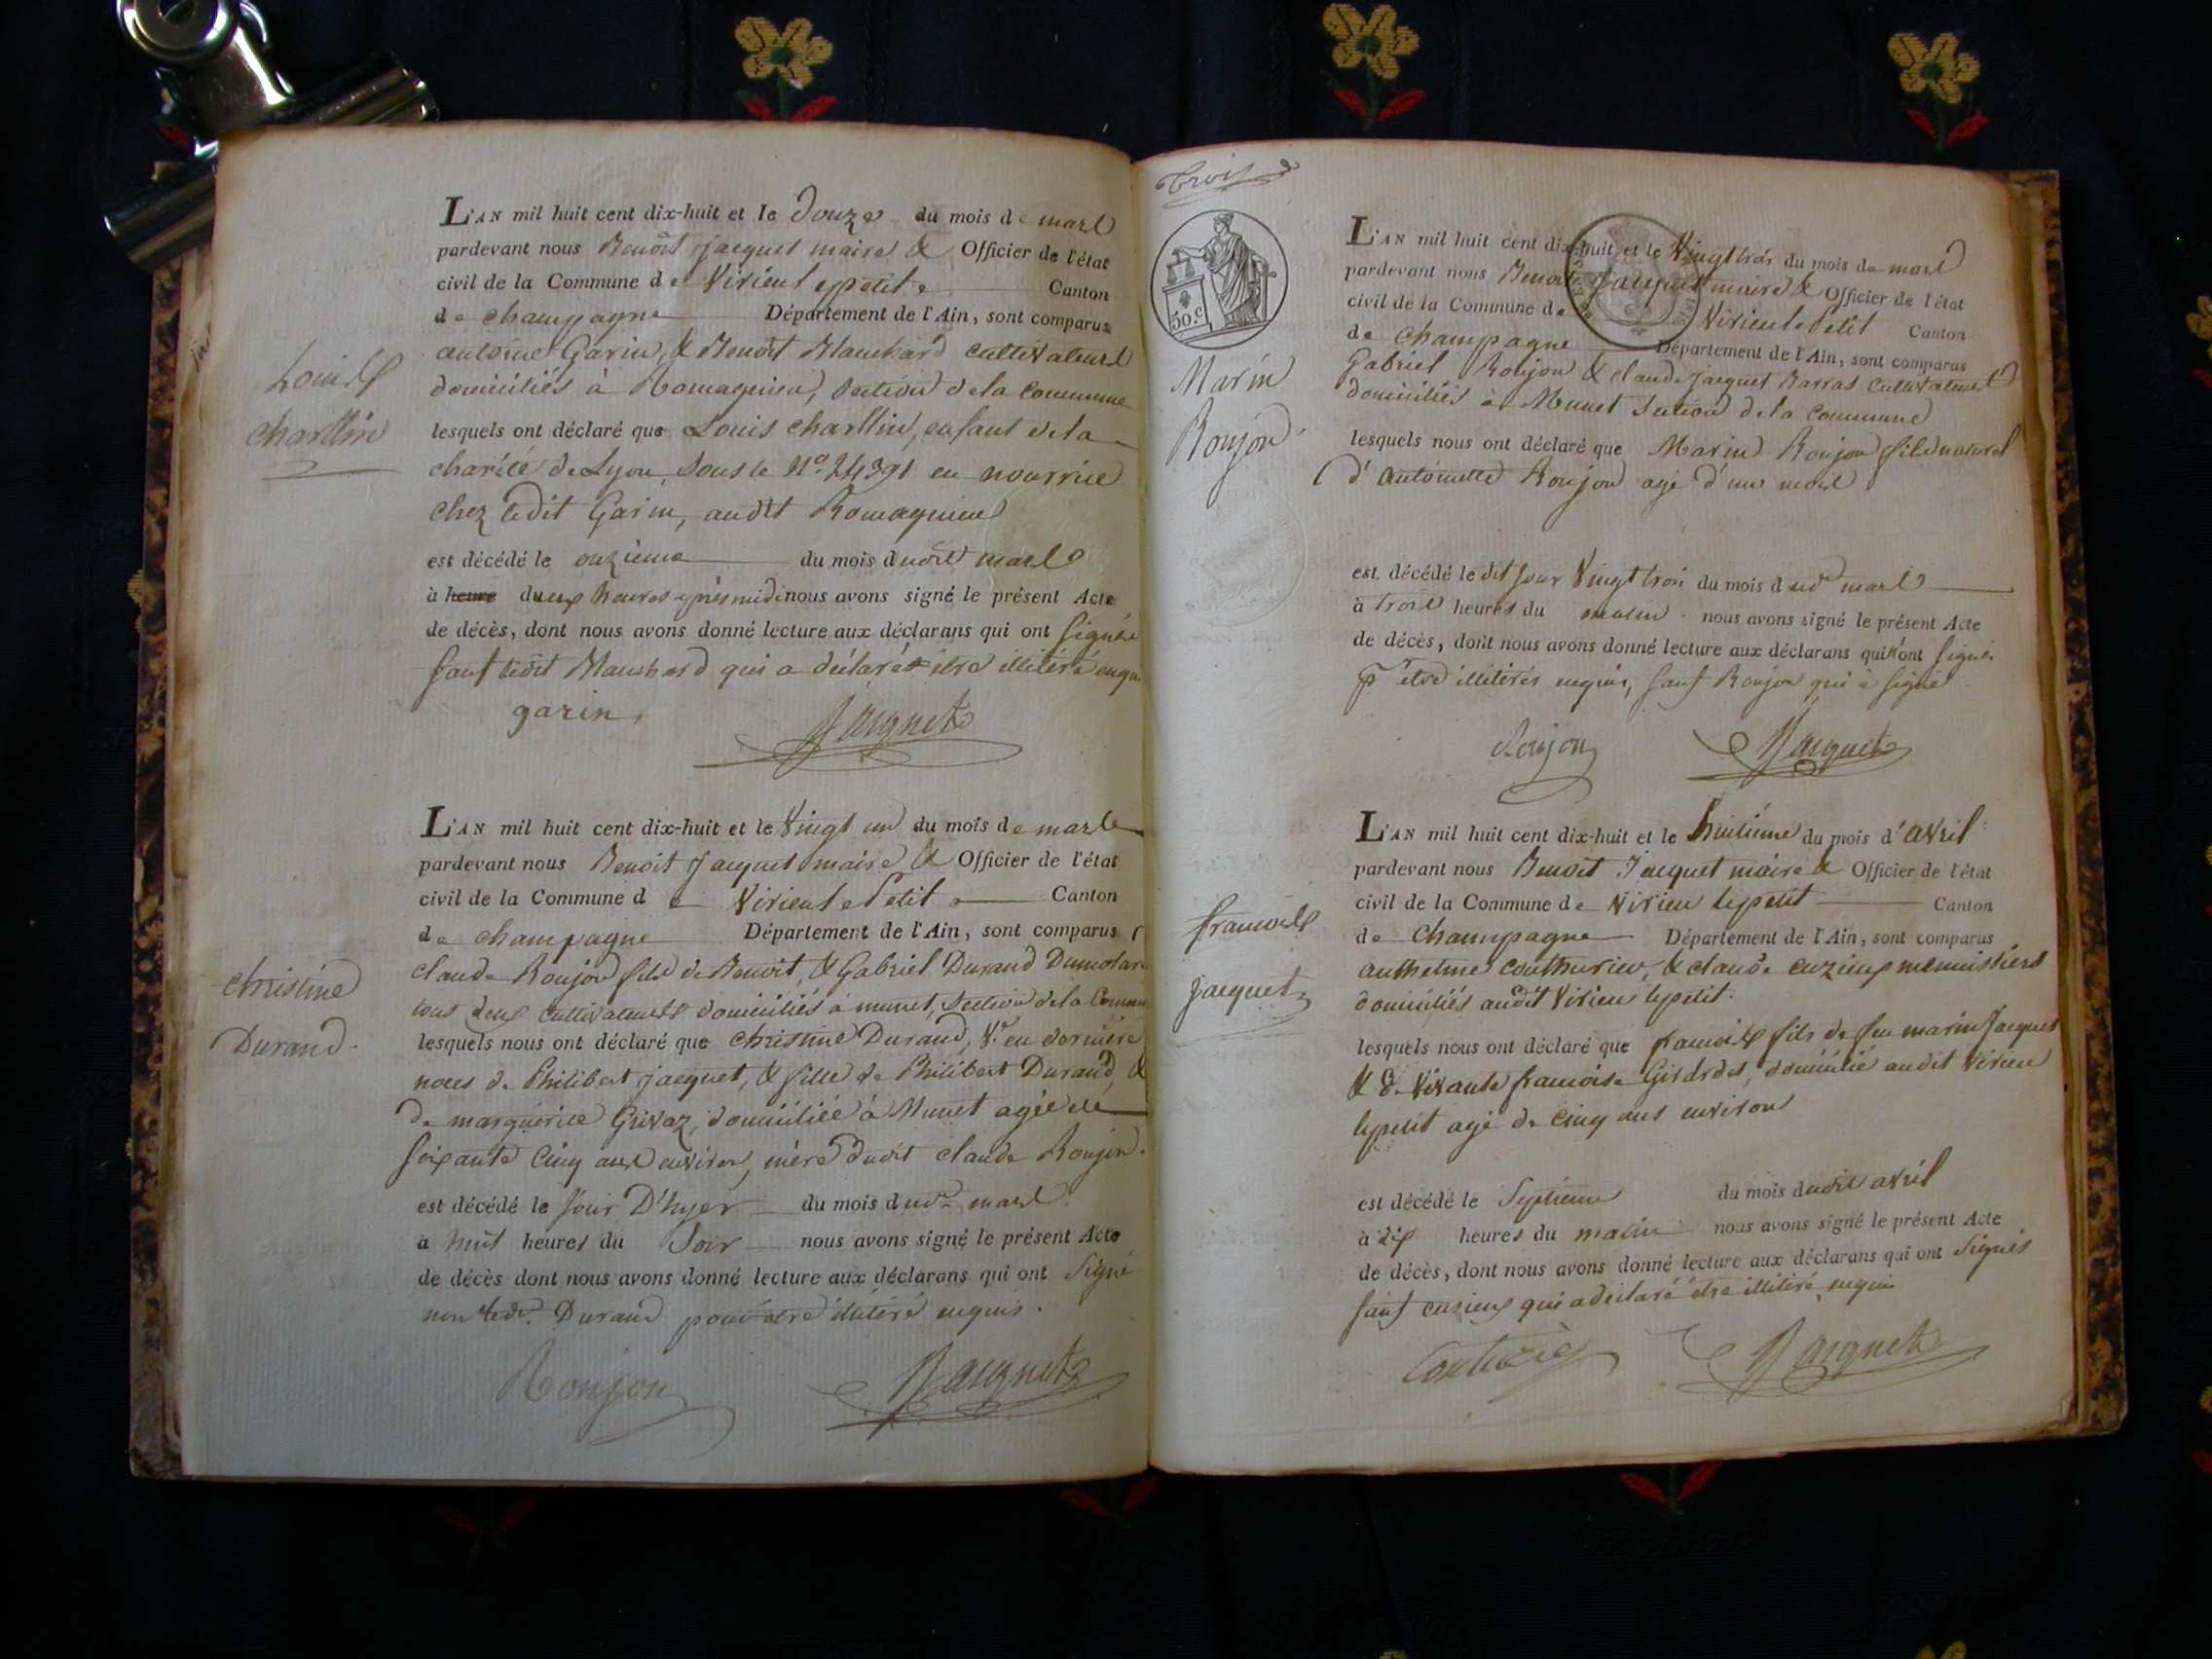 L'AN mil huit cent dix-huit et le douze du mois de mars
pardevant nous Benoit Jacquet maire & Officier de l'état
civil de la Commune de Virieu le petit Canton
de champagne Département de l'Ain, sont comparus
antoine Garin, & Benoit Blanchard cultivateurs
domiciliés à Romagnieu, section de la commune
Louis
charllin
lesquels ont déclaré que Louis charllin, enfant de la
charité de Lyon, sous le N.o 24391 en nourrice
chez ledit Garin, audit Romagnieu
est décédé le onzieme du mois dudit mars
à heure deux heures après midi nous avons signé le présent Acte
de décès, dont nous avons donné lecture aux déclarans qui ont signés
sauf ledit Blanchard qui a déclaré être illitéré enquis
garin
Jacquet
L'AN mil huit cent dix-huit et le vingt un du mois de mars
pardevant nous Benoit Jacquet maire & Officier de l'état
civil de la Commune de Virieu le Petit Canton
de champagne Département de l'Ain, sont comparus
claude Roujon fils de Benoit, & Gabriel Durand Dumolar
tous deux cultivateurs domiciliés à munet, section de la Commune
christine
Durand
lesquels nous ont déclaré que christine Durand, V.e en dernière
noces de Philibert jacquet, & fille de Philibert Durand, &
de marguerite Grivaz, domiciliée à Munet agée de
soixante cinq ans environ, mère dudit claude Roujon.
est décédé le jour D'hyer du mois dud. mars
à huit heures du soir nous avons signé le présent Acte
de décès dont nous avons donné lecture aux déclarans qui ont signé
non led. Durand pour être illitéré enquis.
Roujon
Jacquet
Trois
50.c
L'AN mil huit cent dix-huit et le vingt trois du mois de mars
pardevant nous Benoit Jacquet maire & Officier de l'état
civil de la Commune de Virieu le Petit Canton
de champagne Département de l'Ain, sont comparus
Gabriel Roujon & claude Jacquet Barras cultivateurs
domiciliés à Munet section de la commune
Marin
Roujon
lesquels nous ont déclaré que Marin Roujon fils naturel
d'antoinette Roujon agé d'un mois
est décédé le dit jour vingt trois du mois dud. mars
à trois heures du matin nous avons signé le présent Acte
de décès, dont nous avons donné lecture aux déclarans qui n'ont signés
pr être illitérés enquis, sauf Roujon qui a signé
Roujon
Jacquet
L'AN mil huit cent dix-huit et le huitième du mois d'avril
pardevant nous Benoit Jacquet maire & Officier de l'état
civil de la Commune de Virieu le petit Canton
de champagne Département de l'Ain, sont comparus
anthelme couthurier, & claude cuzieux menuisiers
domiciliés audit Virieu le petit.
francois
jacquet
lesquels nous ont déclaré que francois fils de feu marin Jacquet
& de vivante francoise domicilié audit Virieu
le petit agé de cinq ans environ
est décédé le septieme du mois dudit avril
à dix heures du matin nous avons signé le présent Acte
de décès, dont nous avons donné lecture aux déclarans qui ont signés
sauf cuzieux qui a déclaré être illitéré enquis
Jacquet